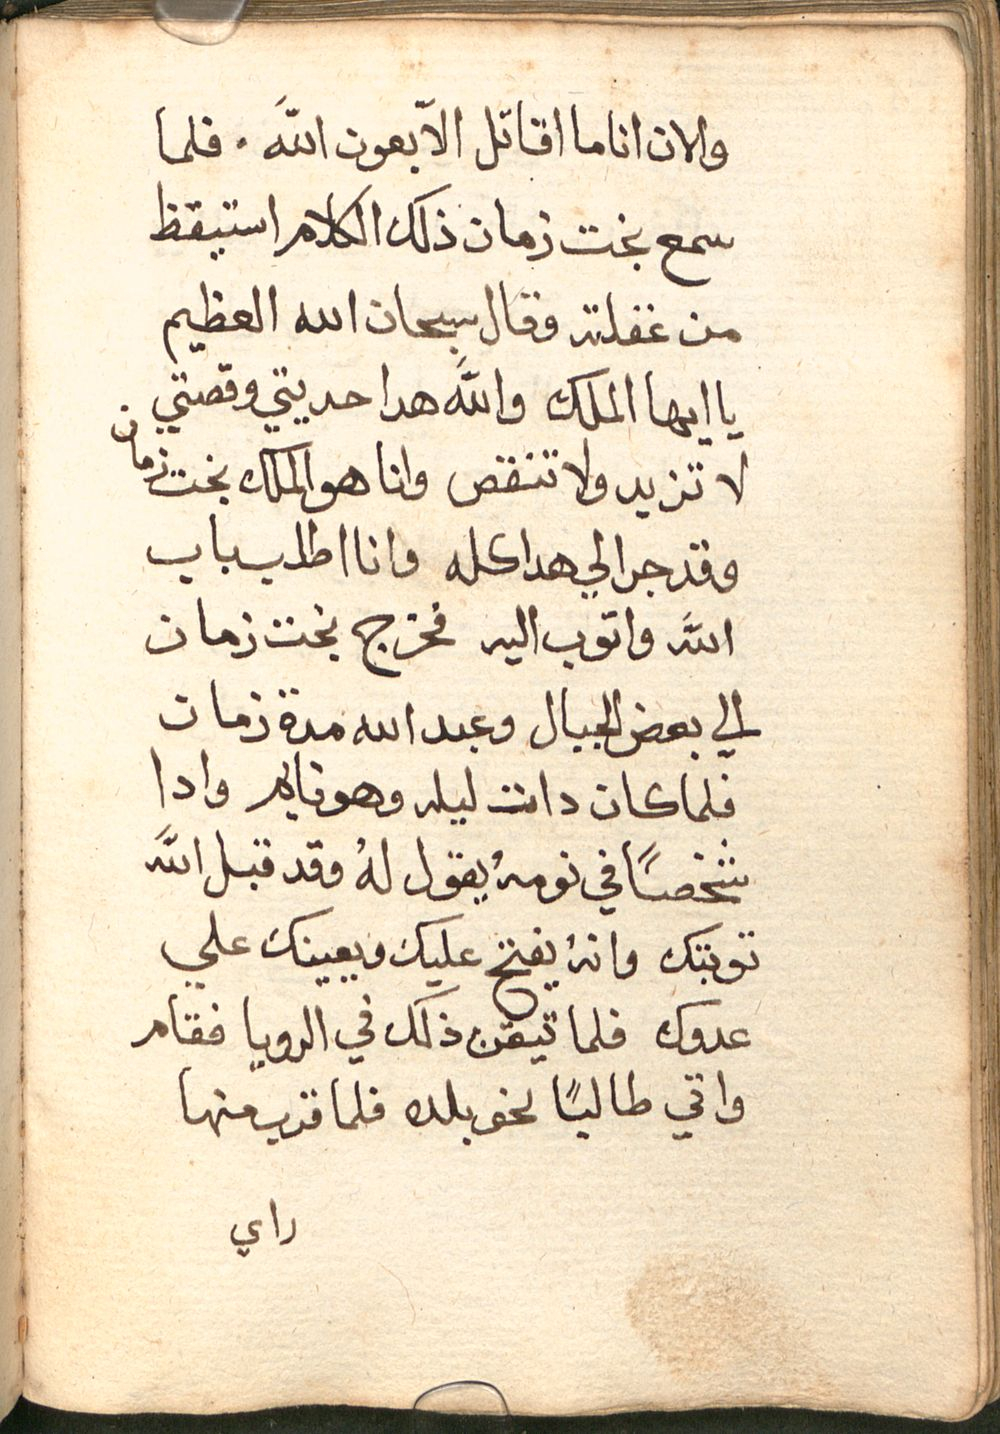 والان اناما اقاتل الّا بعون اللّه . فلما
سمع بخت زمان ذلك الكلام استيقظ
من غفلته وقال سبحان الله العظيم
يا ايها الملك واللّه هدا حديتي وقصتي
لا تزيد ولا تنقص وانا هو الملك بخت زمان
وقد جرالي هدا كله وانا اطلب باب
اللّه واتوب اليه فخرج بخت زمان
الي بعض الجبال وعبد الله مدة زمان
فلما كان دات ليله وهو نايم وادا
شخصًا في نومهُ يقول لهُ وقد قبل اللّه
توبتك وانهُ يفتح عليك ويعينك علي
عدوك فلما تيقن ذلك في الرويا فقام
واتي طالبًا نحو بلده فلما قرب منها
راي